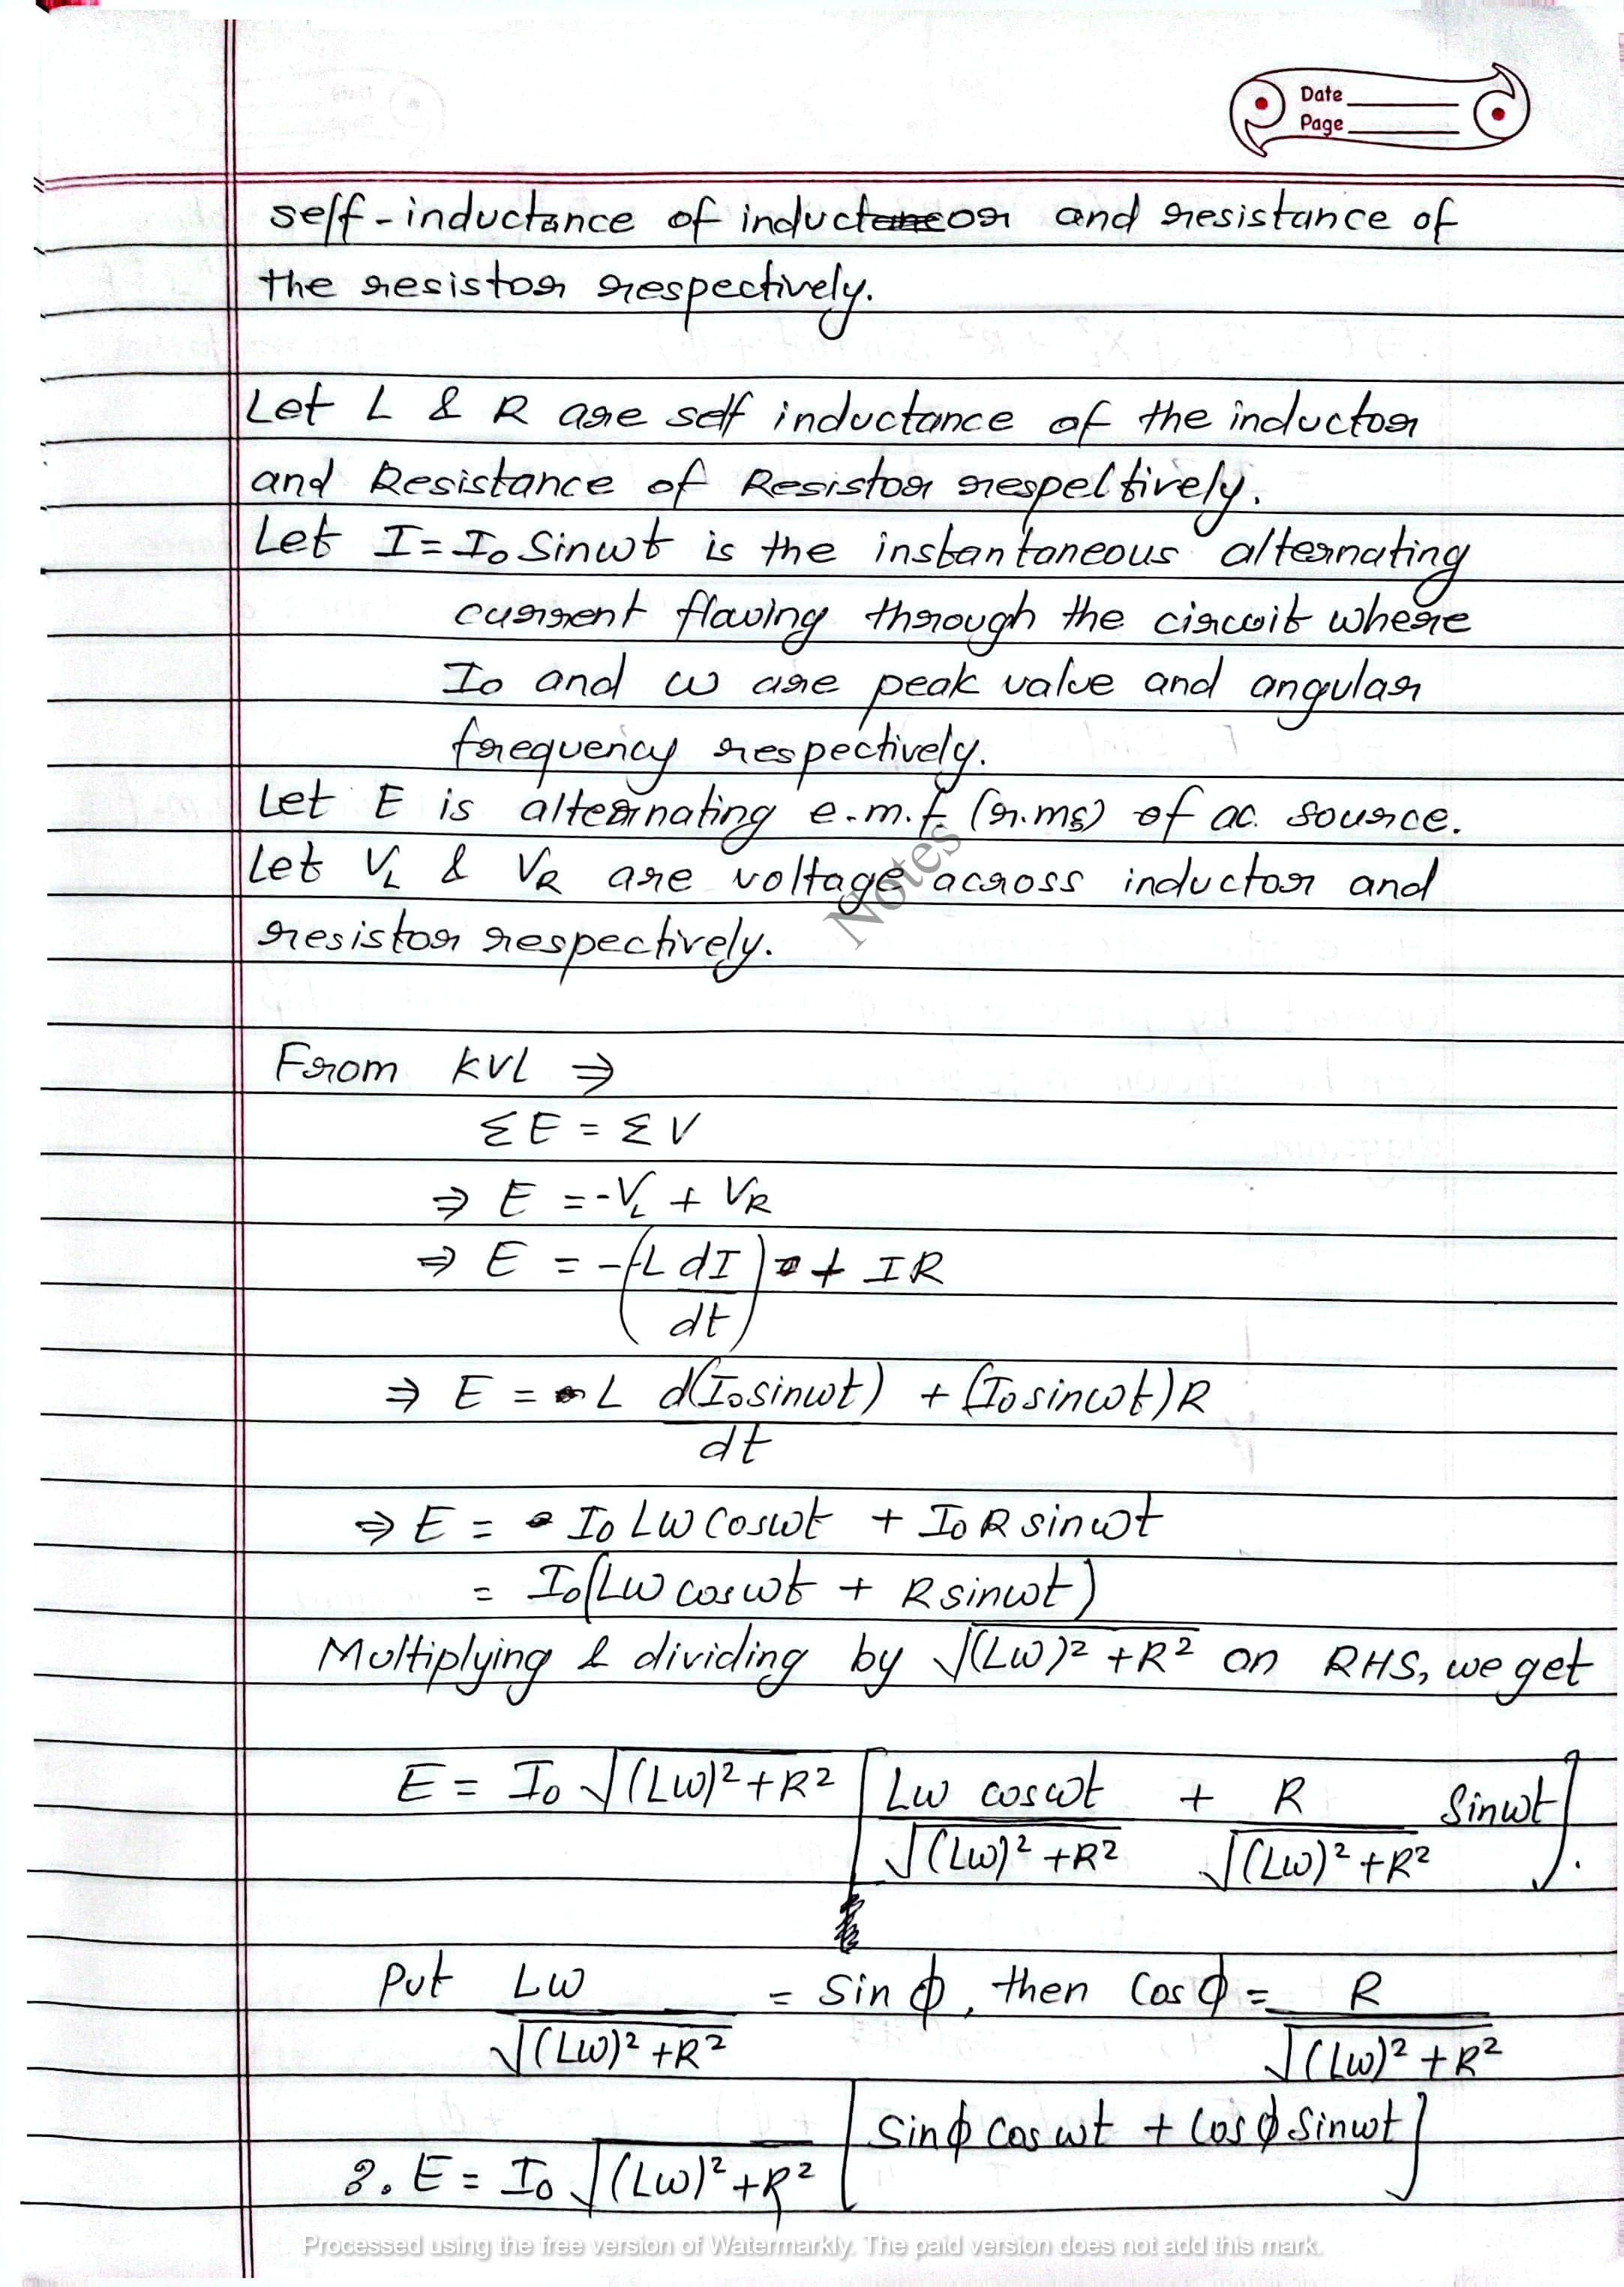 Date
Page
self-inductance of inductor and resistance of
the resistor respectively.
Let L & R are self inductance of the inductor
and Resistance of Resistor respeltively.
Let I = I₀ Sinωt is the instantaneous alternating
current flowing through the circuit where
I₀ and ω are peak value and angular
frequency respectively.
Let E is alternating e.m.f. (r.ms) of ac. source.
Let V_L & V_R are voltage across inductor and
resistor respectively.
Notes
From KVL ⇒
ΣE = ΣV
⇒ E = -V_L + V_R
⇒ E = -(-L dI/dt) + IR
⇒ E = L d(I₀sinωt)/dt + (I₀sinωt)R
⇒ E = I₀ Lω cosωt + I₀ R sinωt
= I₀(Lω cosωt + R sinωt)
Multiplying & dividing by √((Lω)² + R²) on RHS, we get
E = I₀ √((Lω)² + R²) [Lω cosωt/√((Lω)² + R²) + R/√((Lω)² + R²) Sinωt].
Put Lω/√((Lω)² + R²) = Sin ϕ, then Cos ϕ = R/√((Lω)² + R²)
∴ E = I₀ √((Lω)² + R²) [Sinϕ Cos ωt + Cos ϕ Sinωt]
Processed using the free version of Watermarkly. The paid version does not add this mark.